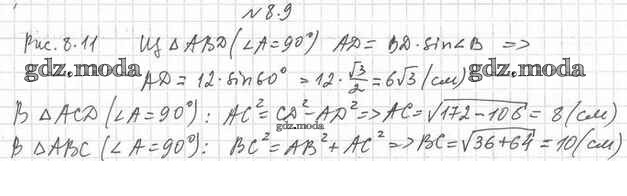 №8.9
Рис. 8.11 Из △ABD (∠A=90°) AD = BD·sin∠B =>
gdz.moda gdz.moda
AD = 12·sin60° = 12·√3/2 = 6√3 (см)
В △ACD (∠A=90°): AC² = CD² - AD² => AC = √172-108 = 8 (см)
gdz.moda
В △ABC (∠A=90°): BC² = AB² + AC² => BC = √36+64 = 10 (см)